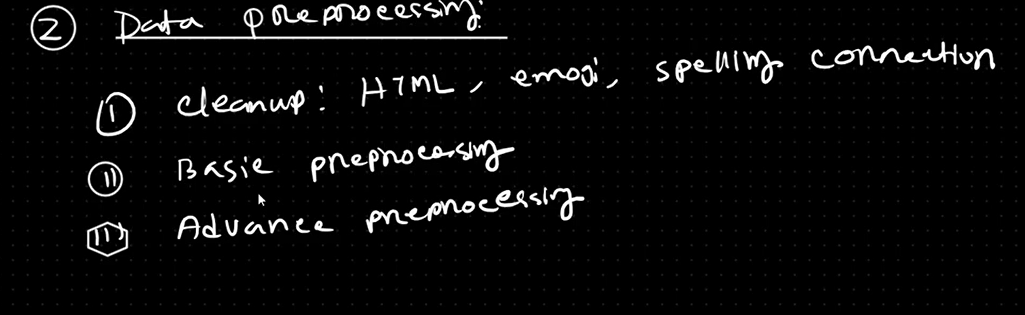 ② Data preprocessing:
① cleanup: HTML, emoji, spelling connection
(II) Basic preprocessing
(III) Advance preprocessing